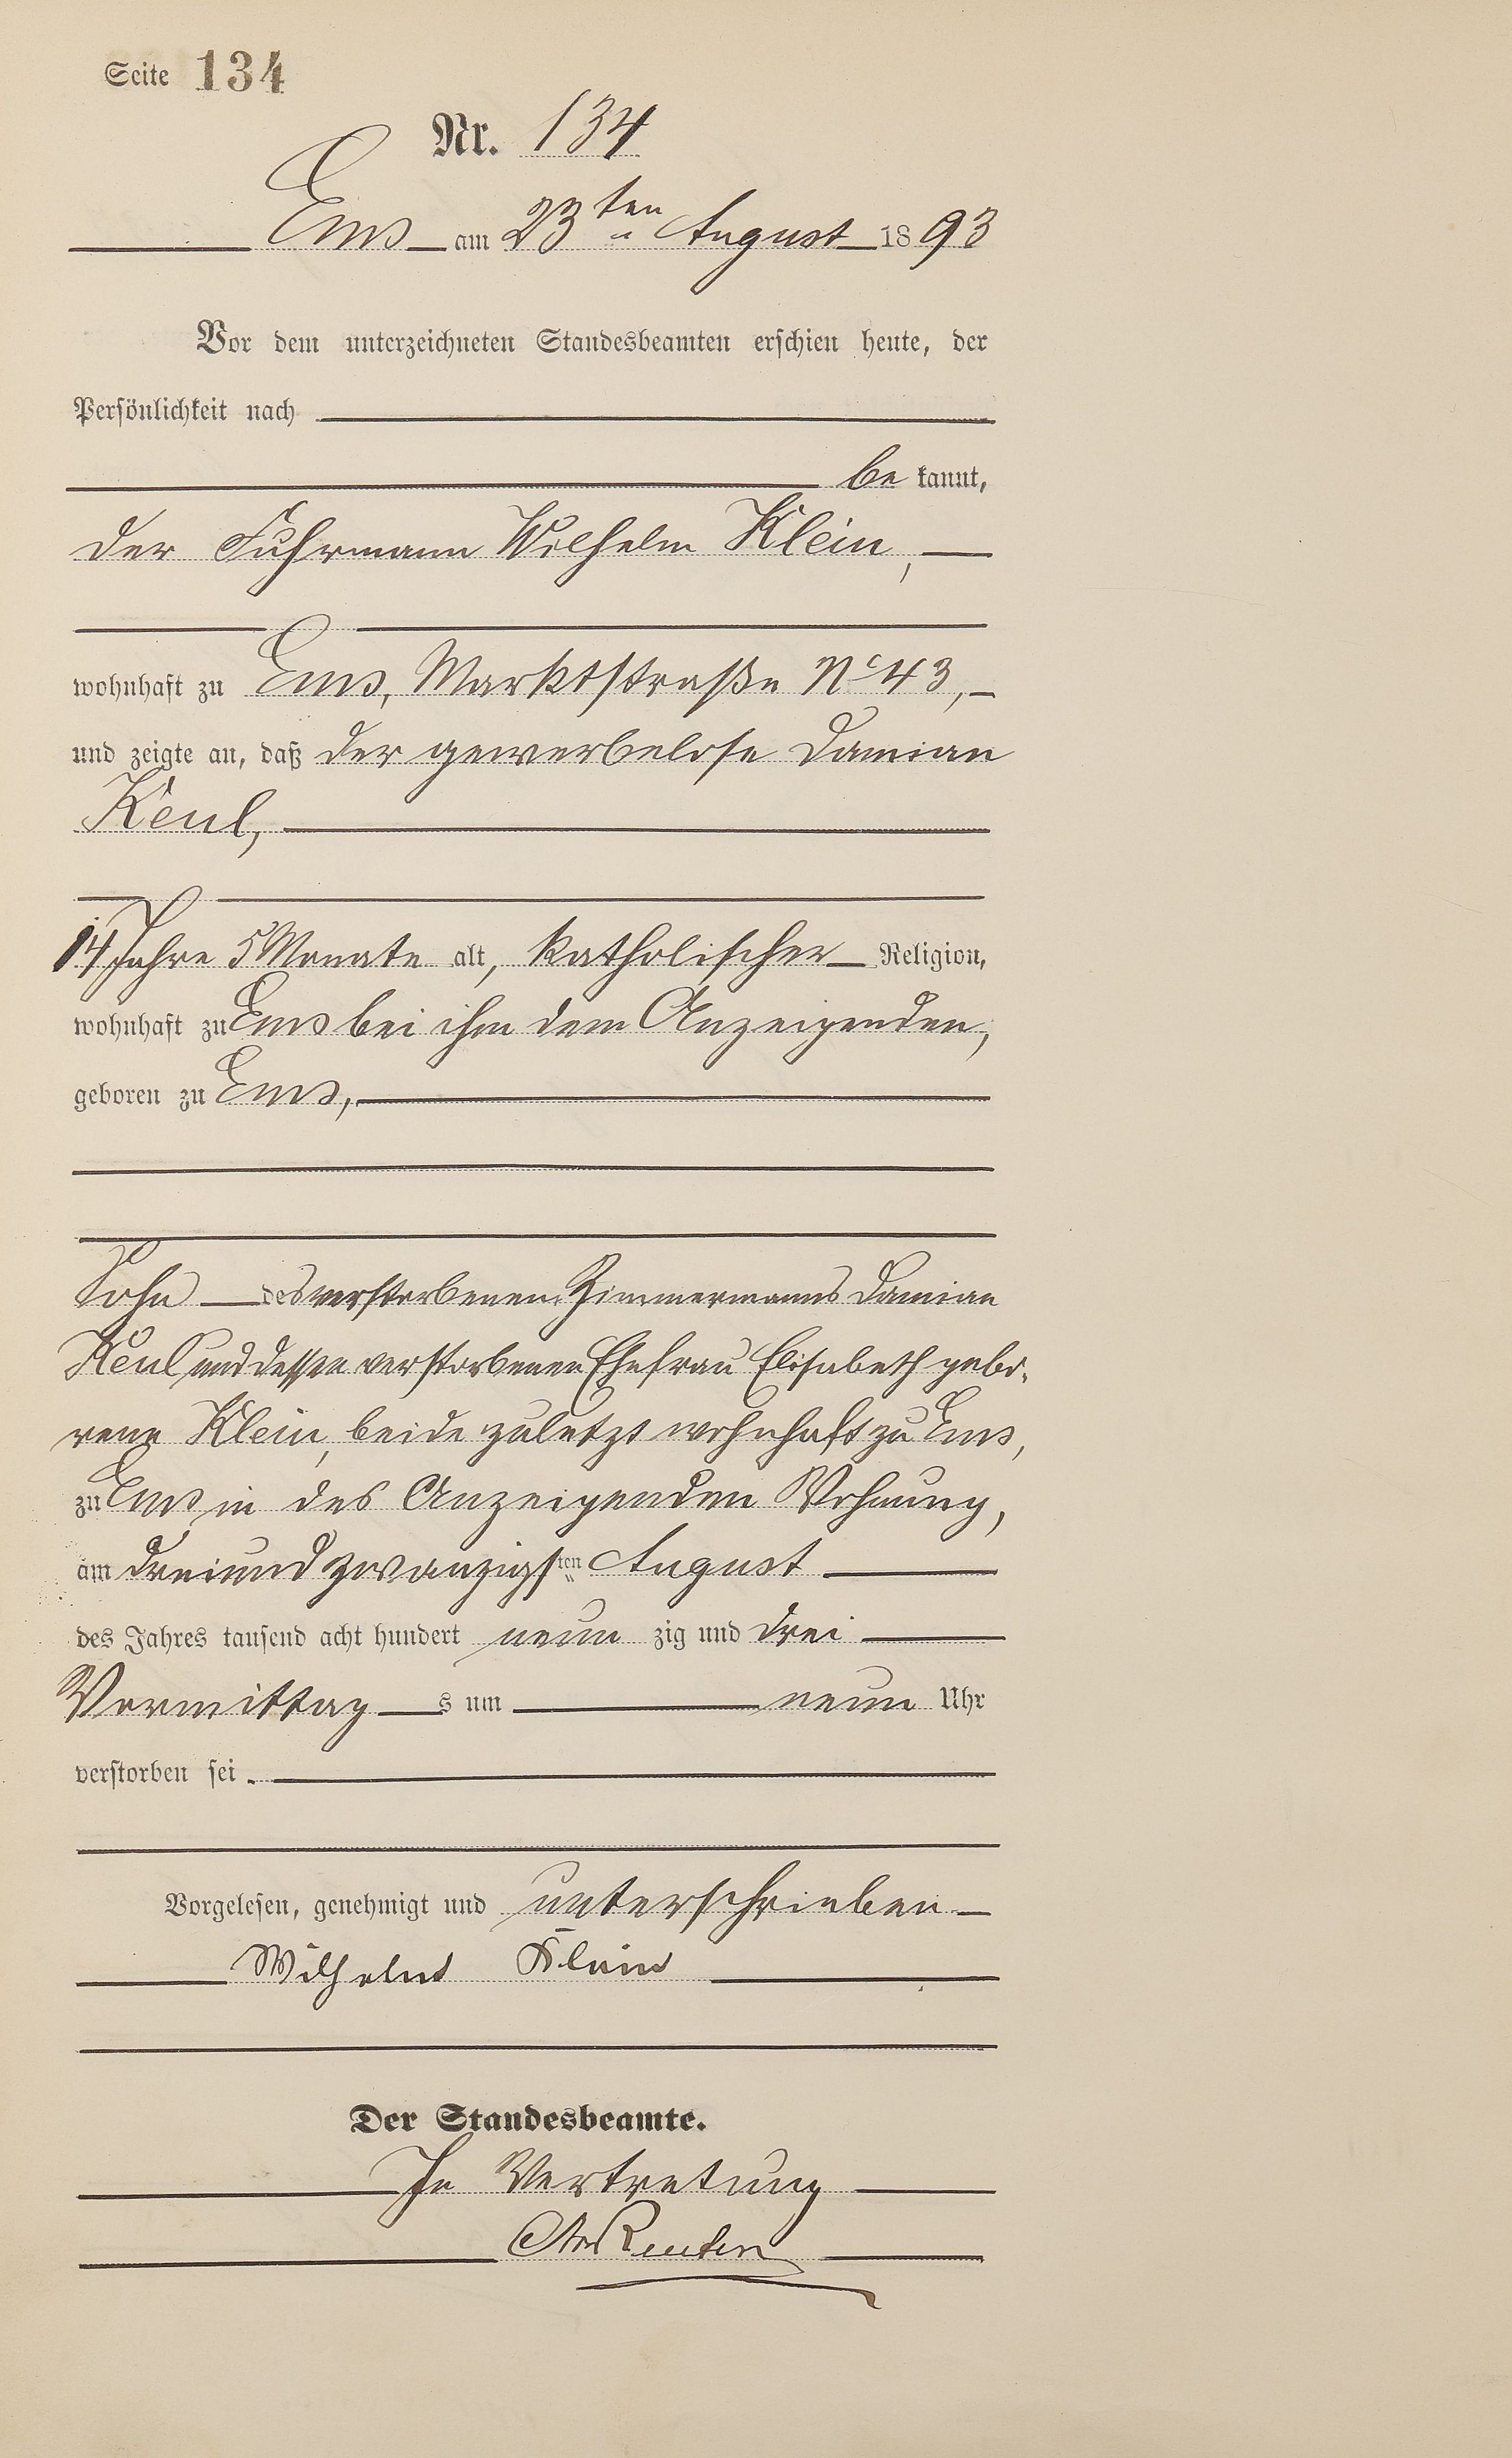 Seite 134
Nr. 134
Ems am 23ten August 1893
Vor dem unterzeichneten Standesbeamten erschien heute, der
Persönlichkeit nach
be kannt,
der Fuhrmann Wilhelm Klein,
wohnhaft zu Ems, Marktstraße No 43,
und zeigte an, daß der gewerbelose Damian
Keul,
14 Jahre 5 Monate alt, katholischer Religion,
wohnhaft zu Ems bei ihm dem Anzeigenden,
geboren zu Ems,
Sohn des verstorbenen Zimmermanns Damian
Keul und dessen verstorbenen Ehefrau Elisabeth gebo-
rene Klein, beide zuletzt wohnhaft zu Ems,
zu Ems in des Anzeigenden Wohnung,
am dreiundzwanzigsten August
des Jahres tausend acht hundert neun zig und drei
Vormittag s um neun Uhr
verstorben sei.
Vorgelesen, genehmigt und unterschrieben
Wilhelm Klein
Der Standesbeamte.
In Vertretung